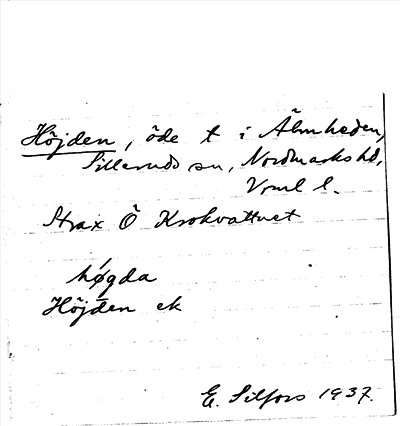 Höjden, öde t i Älmheden,
Silleruds sn, Nordmarks hd,
Vrml l.
Strax Ö Krokvattnet
hǿgda
Höjden ek
E. Silfors 1937.